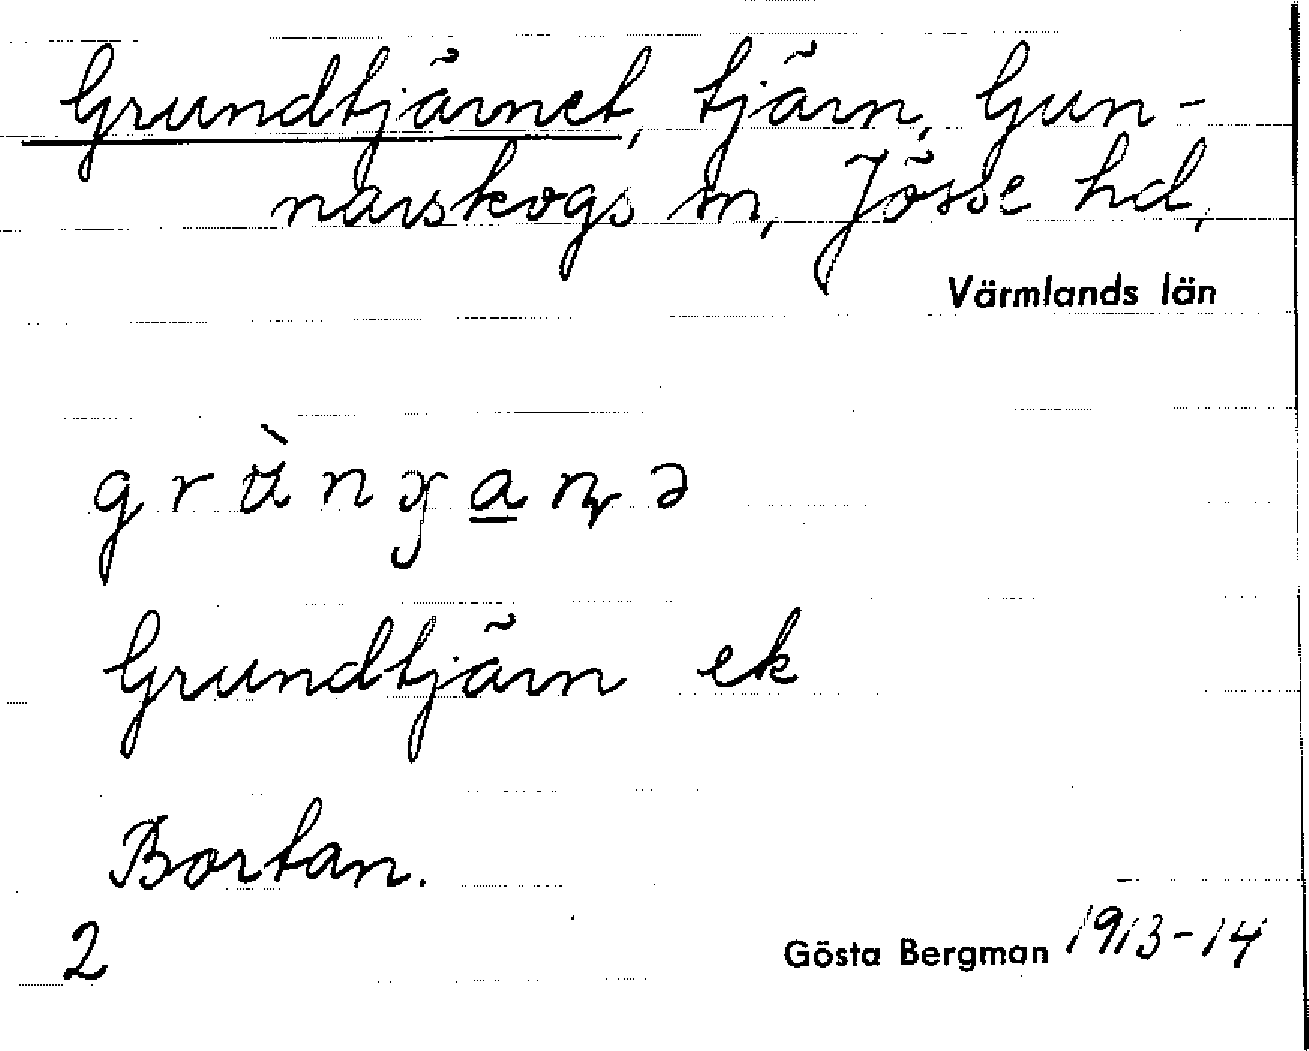 Grundtjärnet, tjärn, Gun-
narskogs sn, Jösse hd,
Värmlands län
Grundtjärn ek
Bortan.
2
Gösta Bergman 1913-14